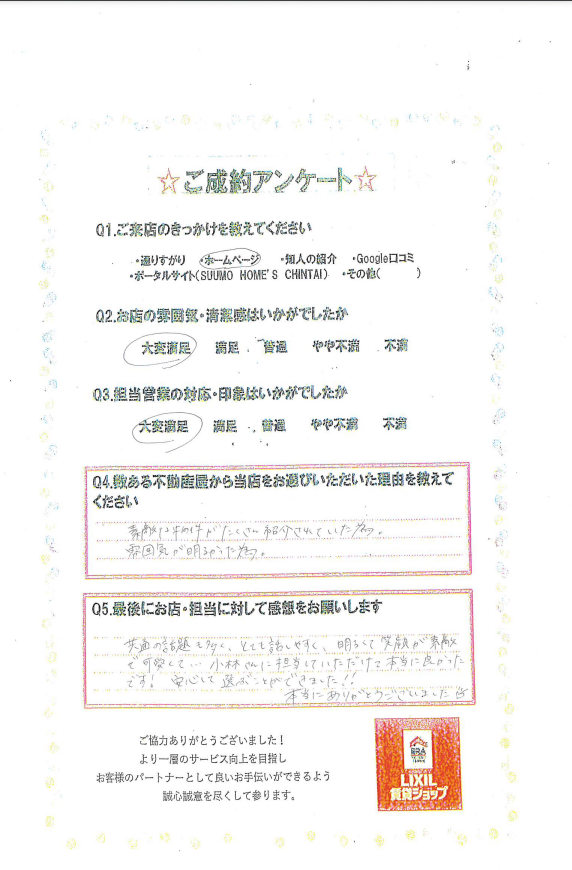 ☆ご成約アンケート☆
Q1.ご来店のきっかけを教えてください
・通りすがり ・ホームページ ・知人の紹介 ・Google口コミ
・ポータルサイト(SUUMO HOME'S CHINTAI) ・その他( )
Q2.お店の雰囲気・清潔感はいかがでしたか
大変満足 満足 普通 やや不満 不満
Q3.担当営業の対応・印象はいかがでしたか
大変満足 満足 普通 やや不満 不満
Q4.数ある不動産屋から当店をお選びいただいた理由を教えて
ください
素敵な物件がたくさん紹介されていた為。
雰囲気が明るかった為。
Q5.最後にお店・担当に対して感想をお願いします
共通の話題も多く、とても話しやすく、明るくて笑顔が素敵
で可愛くて… 小林さんに担当していただけて本当に良かった
です! 安心して選ぶことができました!!
本当にありがとうございました
ご協力ありがとうございました!
より一層のサービス向上を目指し
お客様のパートナーとして良いお手伝いができるよう
誠心誠意を尽くして参ります。
ERA
LIXIL
賃貸ショップ